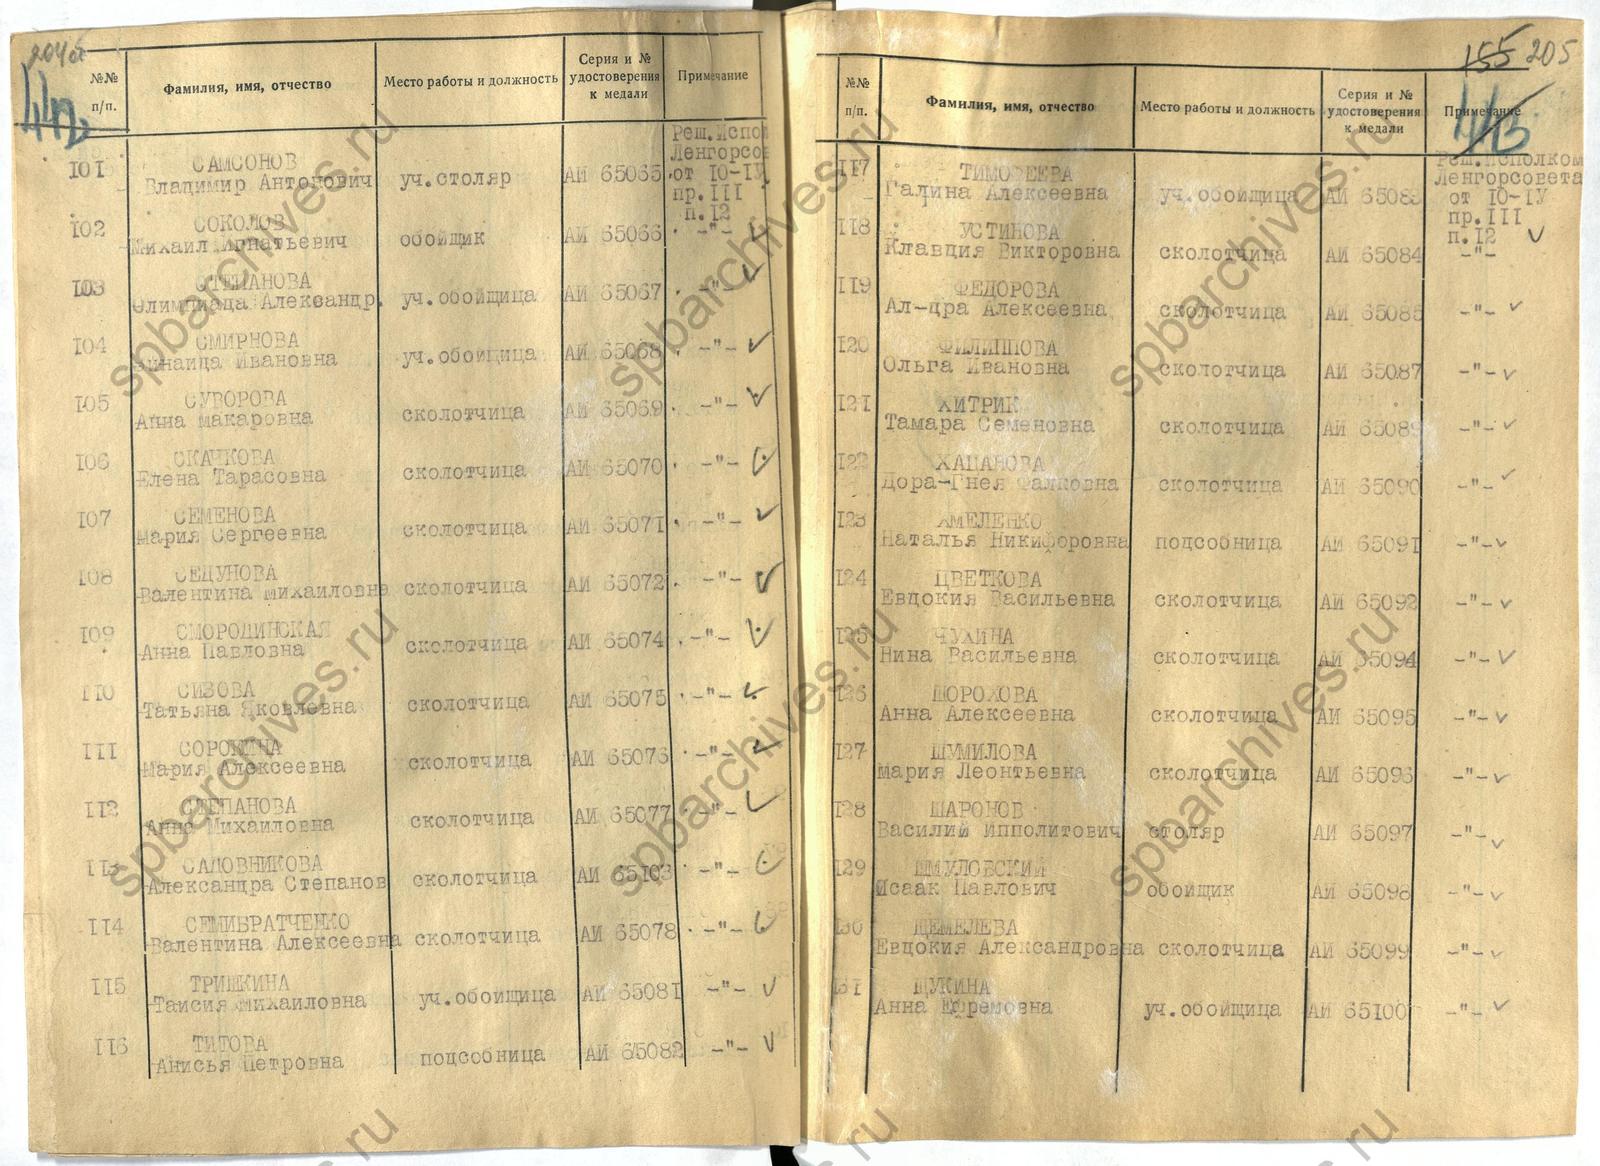 204об
№№ п/п.
Фамилия, имя, отчество
Место работы и должность
Серия и № удостоверения к медали
Примечание
Реш.Испо
Ленгорсо
от 10-IУ
пр.III
п.12
101 САМСОНОВ
Владимир Антонович уч.столяр АИ 65065
102 СОКОЛОВ
Михаил Игнатьевич обойщик АИ 65066 -"-
103 СТЕПАНОВА
Олимпиада Александр. уч.обойщица АИ 65067 -"-
104 СМИРНОВА
Зинаида Ивановна уч.обойщица АИ 65068 -"-
105 СУВОРОВА
Анна Макаровна сколотчица АИ 65069 -"-
106 СКАЧКОВА
Елена Тарасовна сколотчица АИ 65070 -"-
107 СЕМЕНОВА
Мария Сергеевна сколотчица АИ 65071 -"-
108 СЕДУНОВА
Валентина Михайловна сколотчица АИ 65072 -"-
109 СМОРОДИНСКАЯ
Анна Павловна сколотчица АИ 65074 -"-
110 СИЗОВА
Татьяна Яковлевна сколотчица АИ 65075 -"-
111 СОРОКИНА
Мария Алексеевна сколотчица АИ 65076 -"-
112 СТЕПАНОВА
Анна Михайловна сколотчица АИ 65077 -"-
113 САДОВНИКОВА
Александра Степанов сколотчица АИ 65103 -"-
114 СЕМИБРАТЧЕНКО
Валентина Алексеевна сколотчица АИ 65078 -"-
115 ТРИШКИНА
Таисия Михайловна уч.обойщица АИ 65081 -"-
116 ТИТОВА
Анисья Петровна подсобница АИ 65082 -"-
155 205
№№ п/п.
Фамилия, имя, отчество
Место работы и должность
Серия и № удостоверения к медали
Примечание
Реш.Исполком
Ленгорсовета
от 10-IУ
пр.III
п.12
117 ТИМОФЕЕВА
Галина Алексеевна уч.обойщица АИ 65083
118 УСТИНОВА
Клавдия Викторовна сколотчица АИ 65084 -"-
119 ФЕДОРОВА
Ал-дра Алексеевна сколотчица АИ 65085 -"-
120 ФИЛИППОВА
Ольга Ивановна сколотчица АИ 65087 -"-
121 ХИТРИК
Тамара Семеновна сколотчица АИ 65089 -"-
122 ХАЦАНОВА
Дора-Гнея Фалковна сколотчица АИ 65090 -"-
123 ХМЕЛЕНКО
Наталья Никифоровна подсобница АИ 65091 -"-
124 ЦВЕТКОВА
Евдокия Васильевна сколотчица АИ 65092 -"-
125 ЧУХИНА
Нина Васильевна сколотчица АИ 65094 -"-
126 ШОРОХОВА
Анна Алексеевна сколотчица АИ 65095 -"-
127 ШУМИЛОВА
Мария Леонтьевна сколотчица АИ 65096 -"-
128 ШАРОНОВ
Василий Ипполитович столяр АИ 65097 -"-
129 ШМУЛОВСКИЙ
Исаак Павлович обойщик АИ 65098 -"-
130 ЩЕМЕЛЕВА
Евдокия Александровна сколотчица АИ 65099 -"-
131 ЩУКИНА
Анна Ефремовна уч.обойщица АИ 65100 -"-
spbarchives.ru
spbarchives.ru
spbarchives.ru
spbarchives.ru
spbarchives.ru
spbarchives.ru